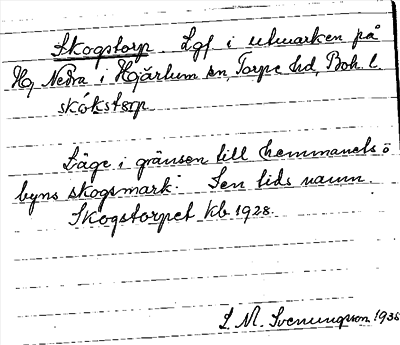 Skogstorp. Lgf i utmarken på
Hj Nedra i Hjärtum sn, Torpe hd, Boh l.
skókstorp
Läge i gränsen till hemmanets ö
byns skogsmark. Sen tids namn.
Skogstorpet kb 1928.
L. M. Svenungsson 1938